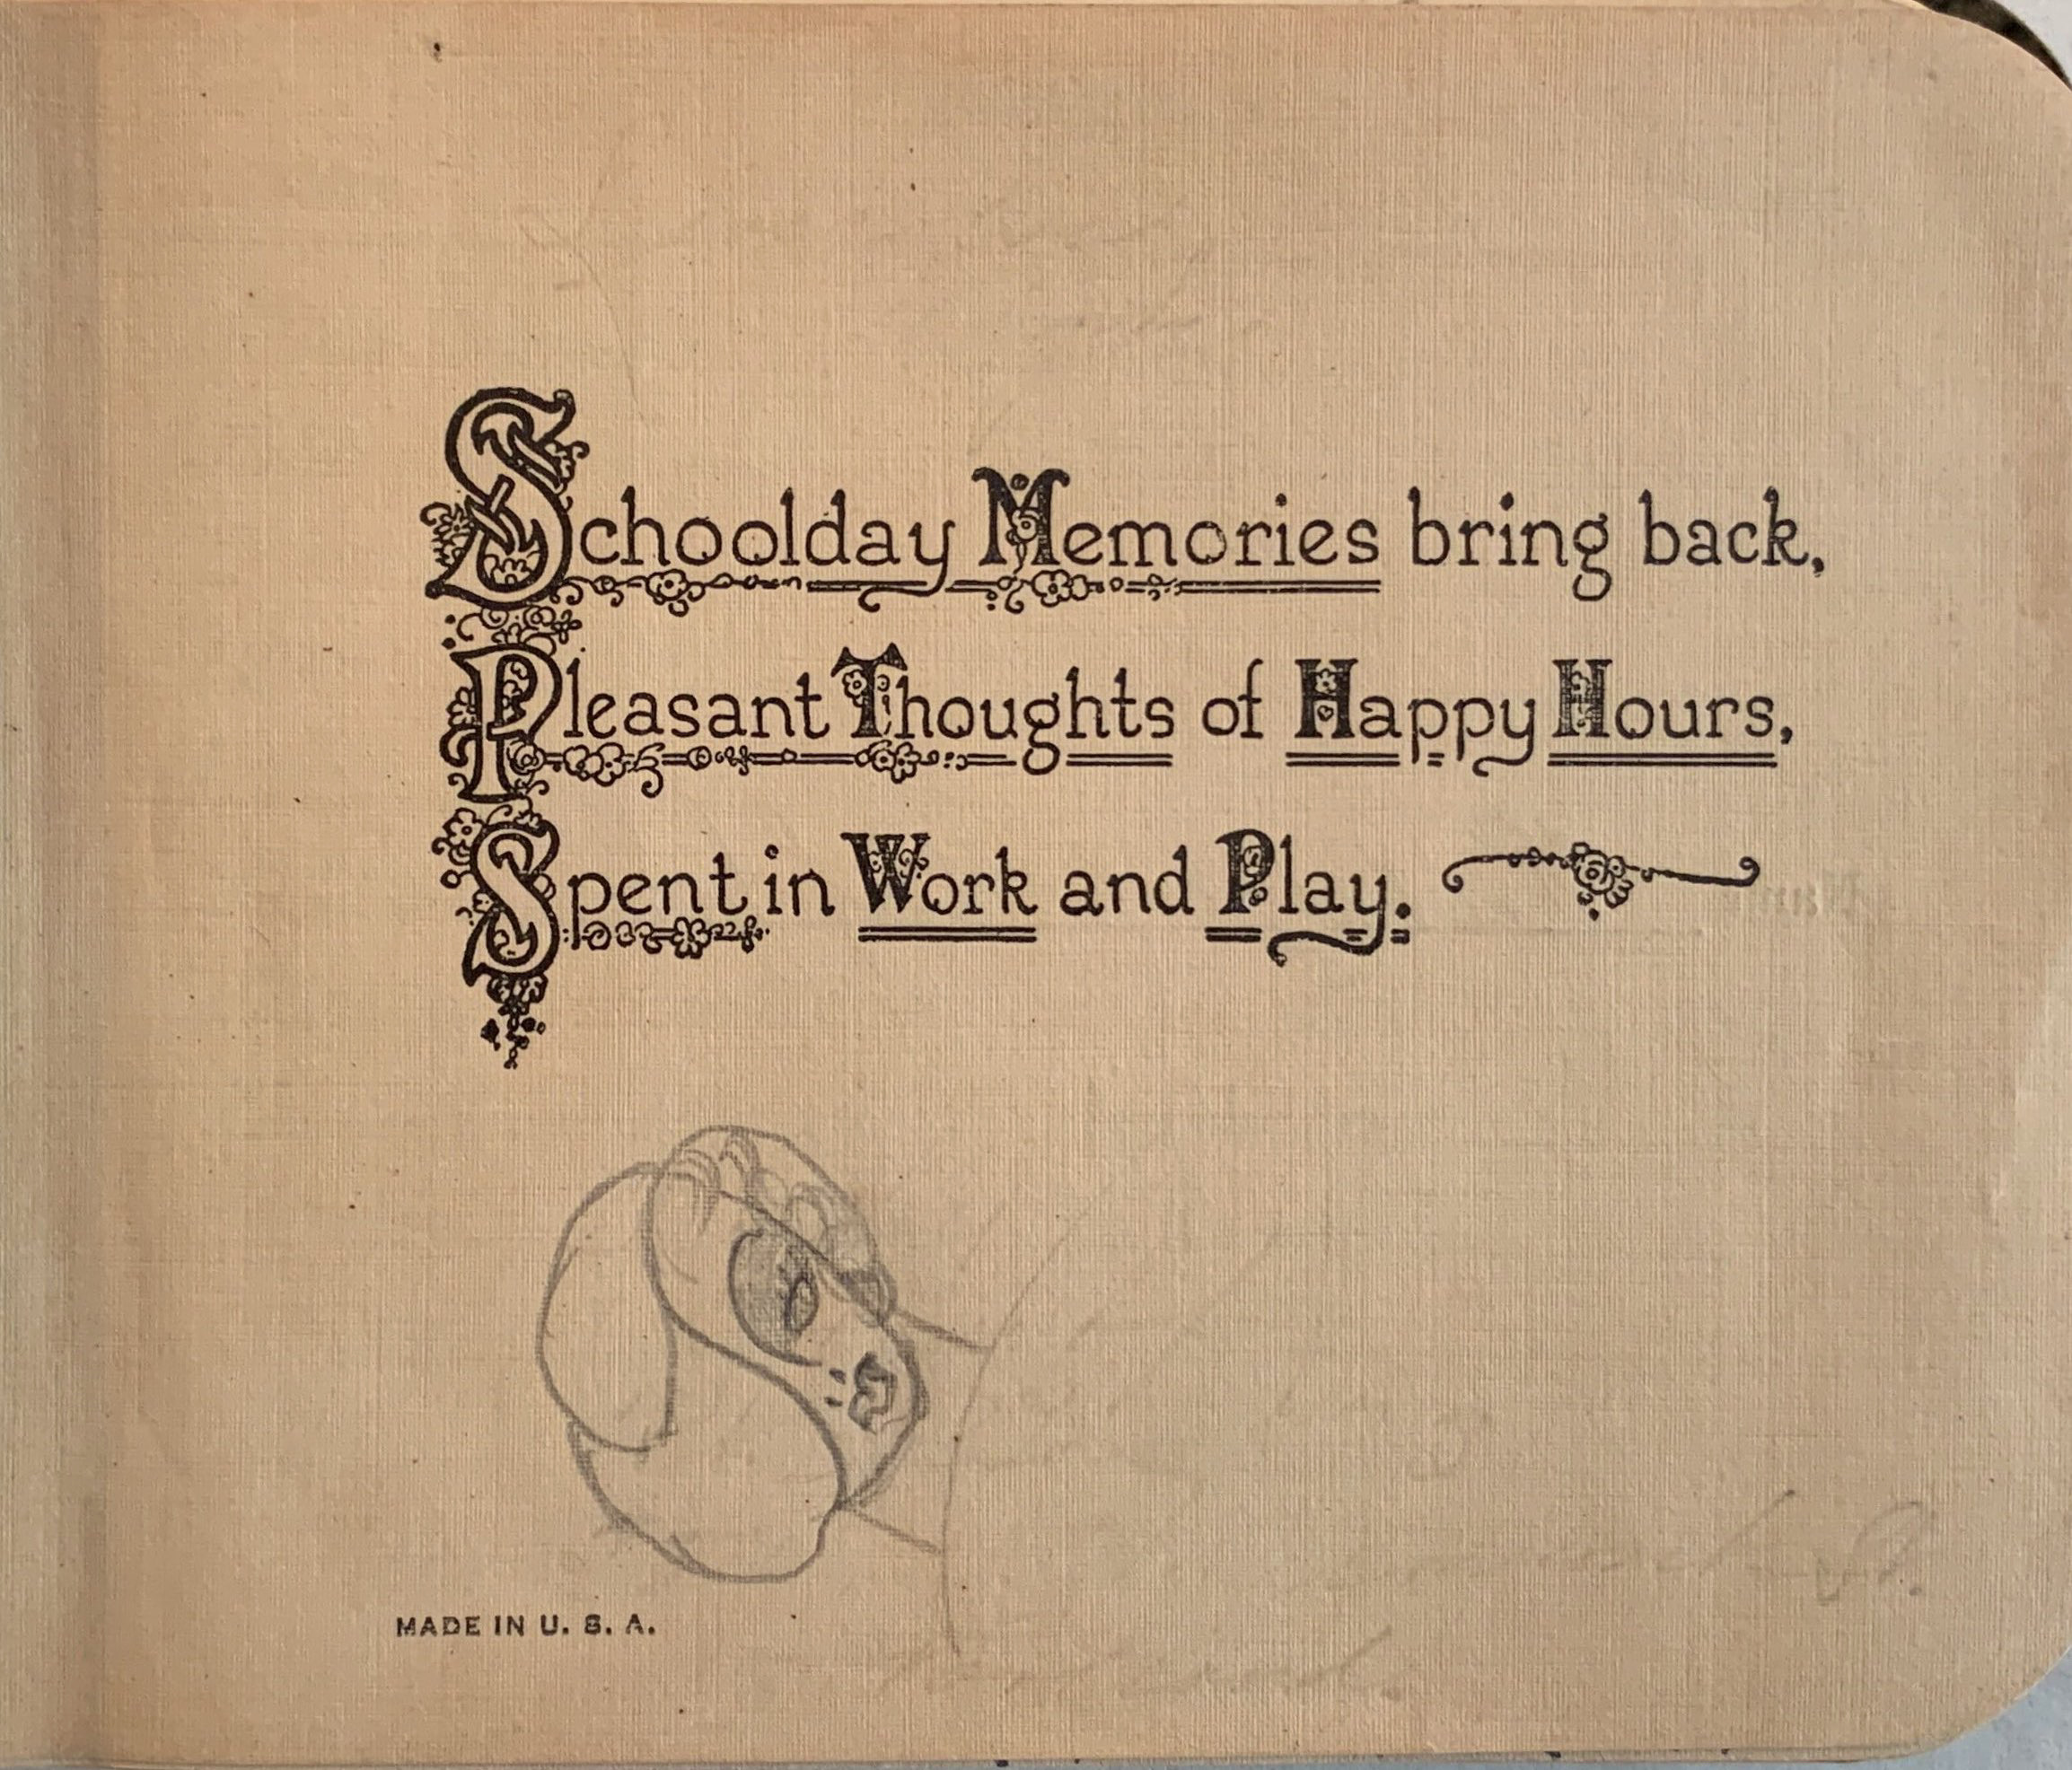 Schoolday Memories bring back,
Pleasant Thoughts of Happy Hours,
Spent in Work and Play.
MADE IN U. S. A.